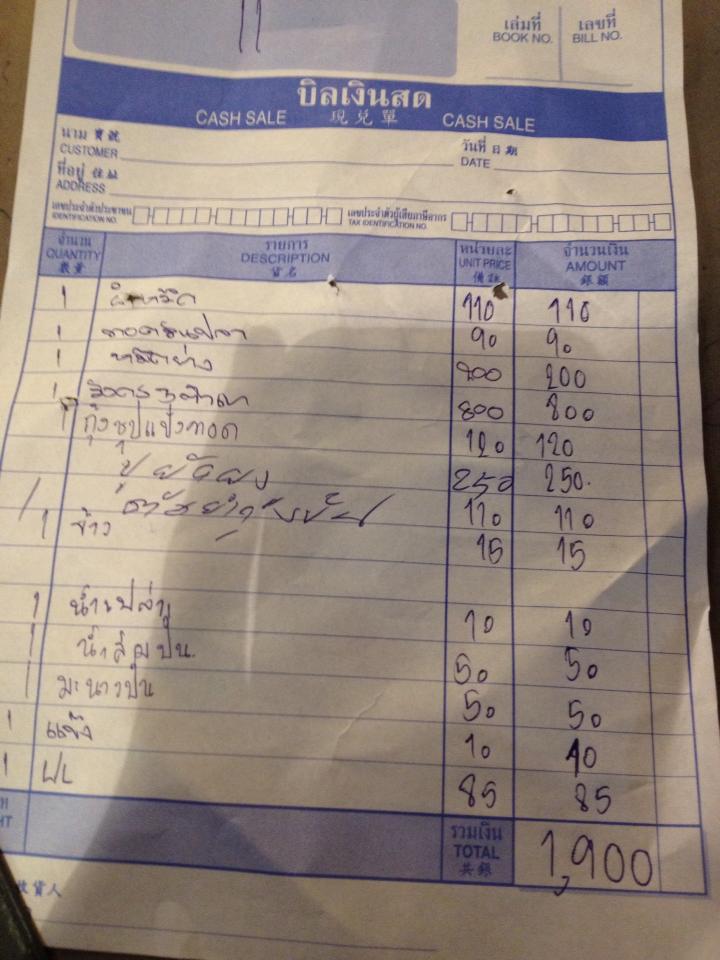 11
เล่มที่ เลขที่
BOOK NO. BILL NO.
บิลเงินสด
CASH SALE 現兌單 CASH SALE
นาม 寶號 วันที่ 日期
CUSTOMER DATE
ที่อยู่ 住址
ADDRESS
เลขประจำตัวประชาชน เลขประจำตัวผู้เสียภาษีอากร
IDENTIFICATION NO. TAX IDENTIFICATION NO.
จำนวน รายการ หน่วยละ จำนวนเงิน
QUANTITY DESCRIPTION UNIT PRICE AMOUNT
數量 貨名 價銀 銀額
1 110 110
1 90 90
1 200 200
1 800 800
1 กุ้งชุปแป้งทอด 120 120
ปูผัดผง 250 250.
1 110 110
1 ข้าว 15 15
1 น้ำเปล่า 10 10
1 น้ำส้มปั่น 50 50
1 มะนาวปั่น 50 50
1 แข็ง 10 10
1 85 85
รวมเงิน
TOTAL 1,900
共銀
收貨人